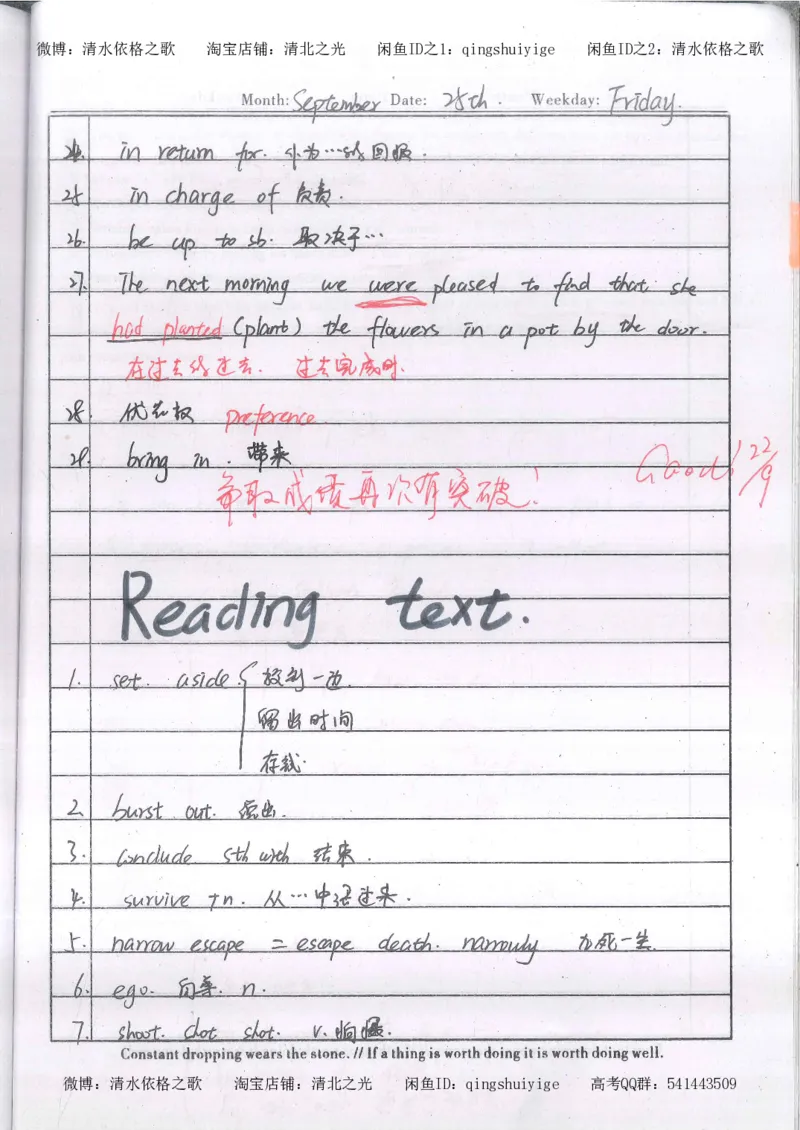 微博：清水依格之歌 淘宝店铺：清北之光 闲鱼ID之1：qingshuiyige 闲鱼ID之2：清水依格之歌
Month: September Date: 25th. Weekday: Friday.
24. in return for. 作为…的回报.
25 in charge of 负责.
26. be up to sb. 取决于…
27. The next morning we were pleased to find that she
had planted (plant) the flowers in a pot by the door.
在过去的过去. 过去完成时.
28. 优先权 preference
29. bring in. 带来
Good! 22/9
争取成绩再次有突破!
Reading text.
1. set aside { 放到一边.
留出时间
存钱.
2. burst out.
3. conclude sth with 结束.
4. survive +n. 从…中活过来.
5. narrow escape = escape death narrowly 九死一生.
6. ego. 自尊. n.
7. shoot. shot shot. v.
Constant dropping wears the stone. // If a thing is worth doing it is worth doing well.
微博：清水依格之歌 淘宝店铺：清北之光 闲鱼ID：qingshuiyige 高考QQ群：541443509